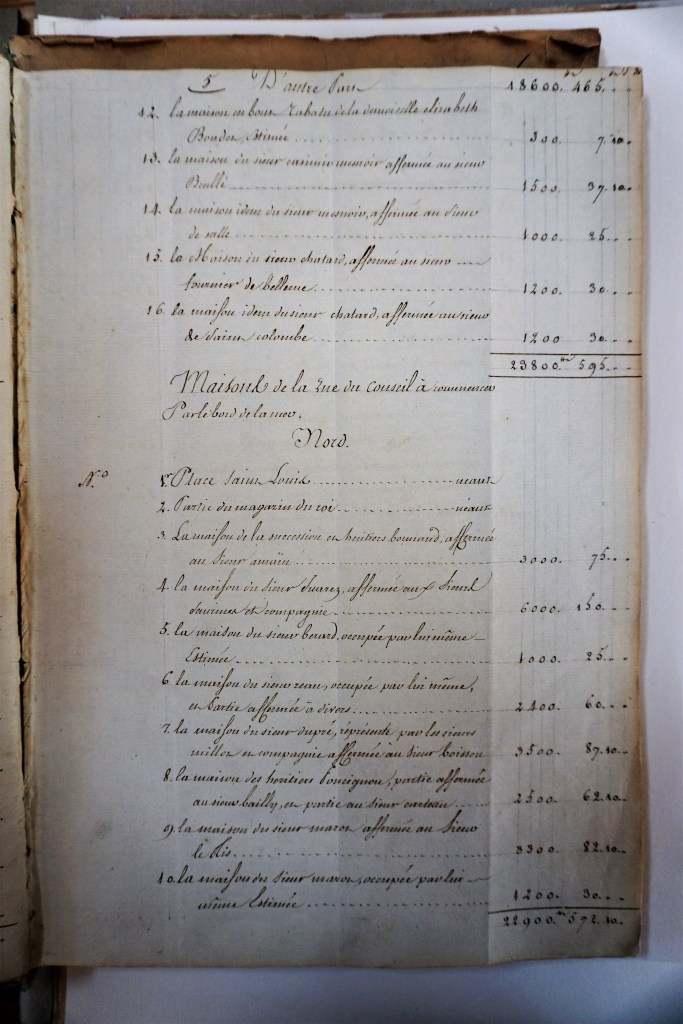 5 D'autre Part 18600. 465...
12. la maison en bour Tabatu de la demoiselle elizabeth
Boudet, Estimée 300. 7. 10..
13. la maison du sieur casimir mesnoir affermée au sieur
Brullé 1500. 37. 10..
14. la maison idem du sieur mesnoir, affermée au sieur
de salle 1000. 25...
15. la Maison du sieur chatard, affermée au sieur
fournier de bellevue 1200. 30...
16. la maison idem du sieur chatard, affermée au sieur
de Saint colombe 1200 30...
23800.tt 595...
Maisons de la rue du Conseil à commencer
Par le bord de la mer.
Nord.
N.o 1.er Place Saint Louis néant
2. Partie du magazin du roi néant
3. La maison de la succession et héritiers, affermée
au sieur 3000. 75...
4. la maison du sieur Suarez, affermée aux sieurs
et compagnie 6000. 150...
5. la maison du sieur berard, occupée par lui même
Estimée 1000. 25...
6. la maison du sieur reau, occupée par lui même,
et partie affermée à divers 2400. 60...
7. la maison du sieur dupré, réprésenté par les sieurs
millot et compagnie affermée au sieur boisson 3500. 87. 10..
8. la maison des héritiers Poncignon, partie affermée
au sieur bailly, et partie au sieur carteau 2500. 62. 10..
9. la maison du sieur marot affermée au sieur
le Ris 3300. 82. 10..
10. la maison du sieur marot, occupée par lui
même Estimée 1200. 30...
22900.tt 572. 10..